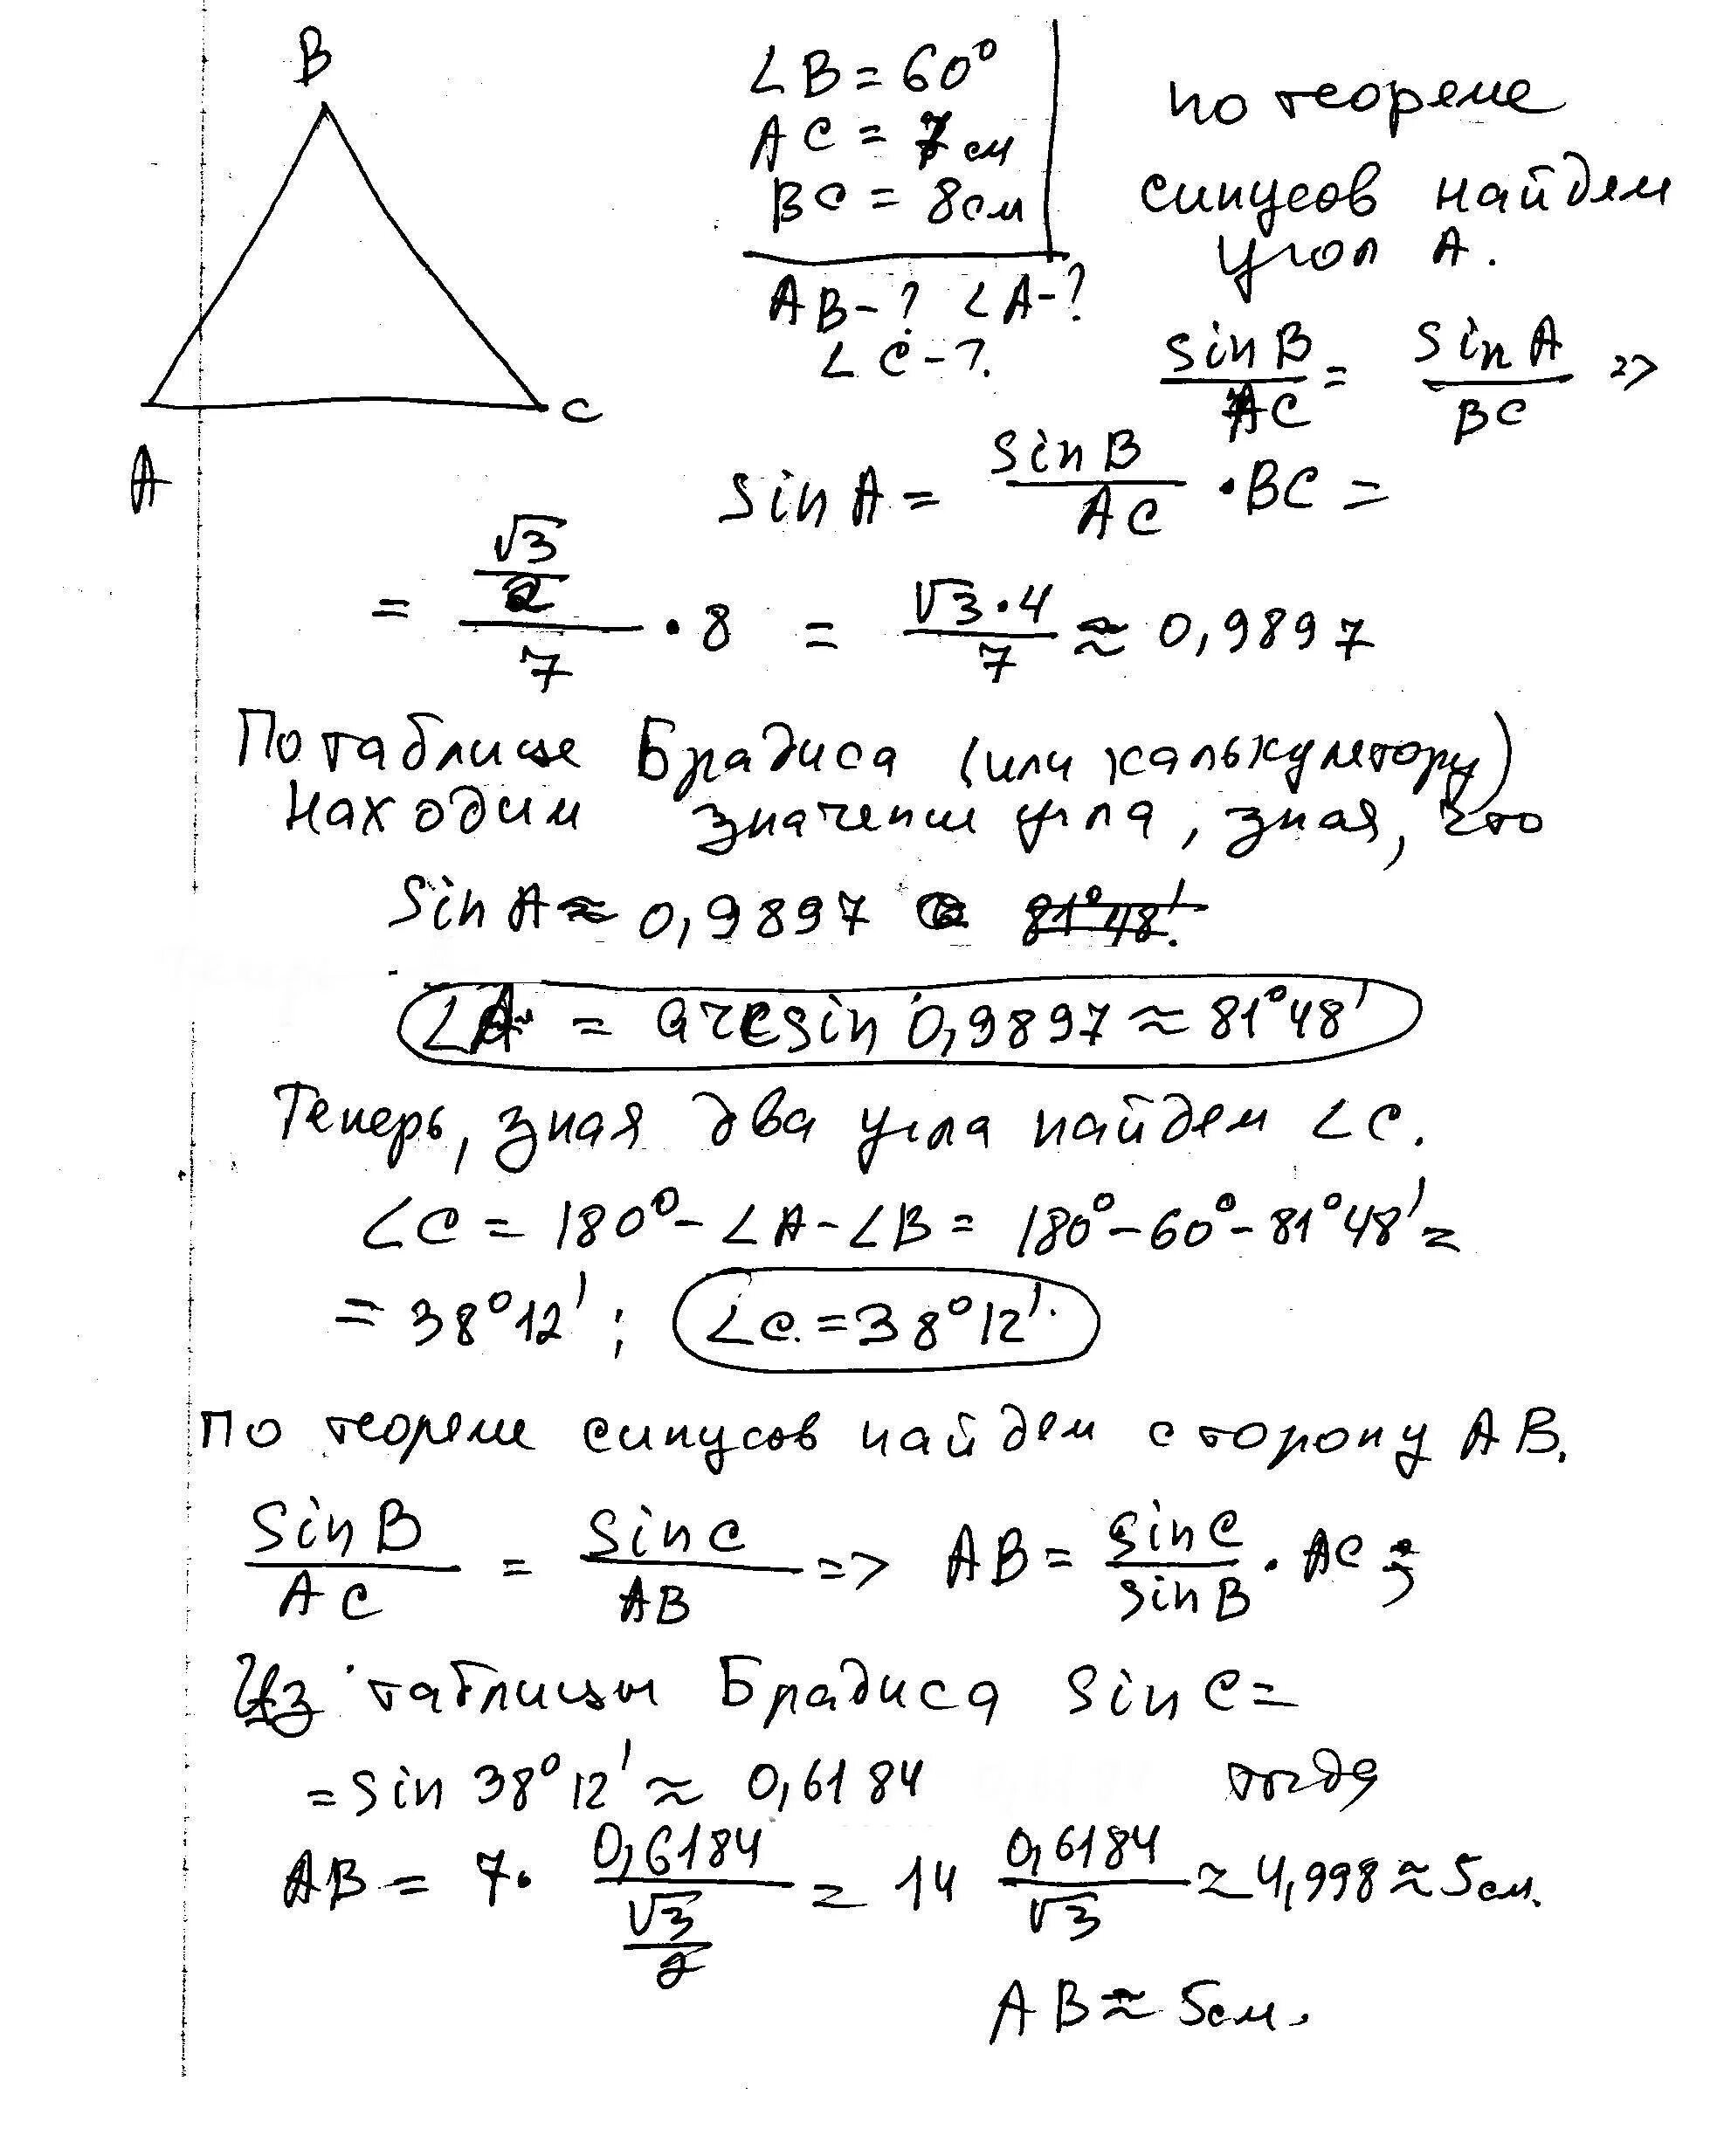 B
A
C
∠B = 60°
AC = 7 см
BC = 8 см
AB - ? ∠A - ?
∠C - ?
по теореме
синусов найдем
угол A.
sin B / AC = sin A / BC =>
sin A = sin B / AC · BC =
= (√3/2) / 7 · 8 = √3·4 / 7 ≈ 0,9897
По таблице Брадиса (или калькулятору)
находим значение угла, зная, что
sin A ≈ 0,9897 81°48'.
∠A = arcsin 0,9897 ≈ 81°48'
Теперь, зная два угла найдем ∠C.
∠C = 180° - ∠A - ∠B = 180° - 60° - 81°48' =
= 38°12' ; ∠C = 38°12'.
По теореме синусов найдем сторону AB.
sin B / AC = sin C / AB => AB = sin C / sin B · AC ;
Из таблицы Брадиса sin C =
= sin 38°12' ≈ 0,6184 тогда
AB = 7 · 0,6184 / (√3/2) = 14 0,6184 / √3 ≈ 4,998 ≈ 5 см.
AB ≈ 5 см.